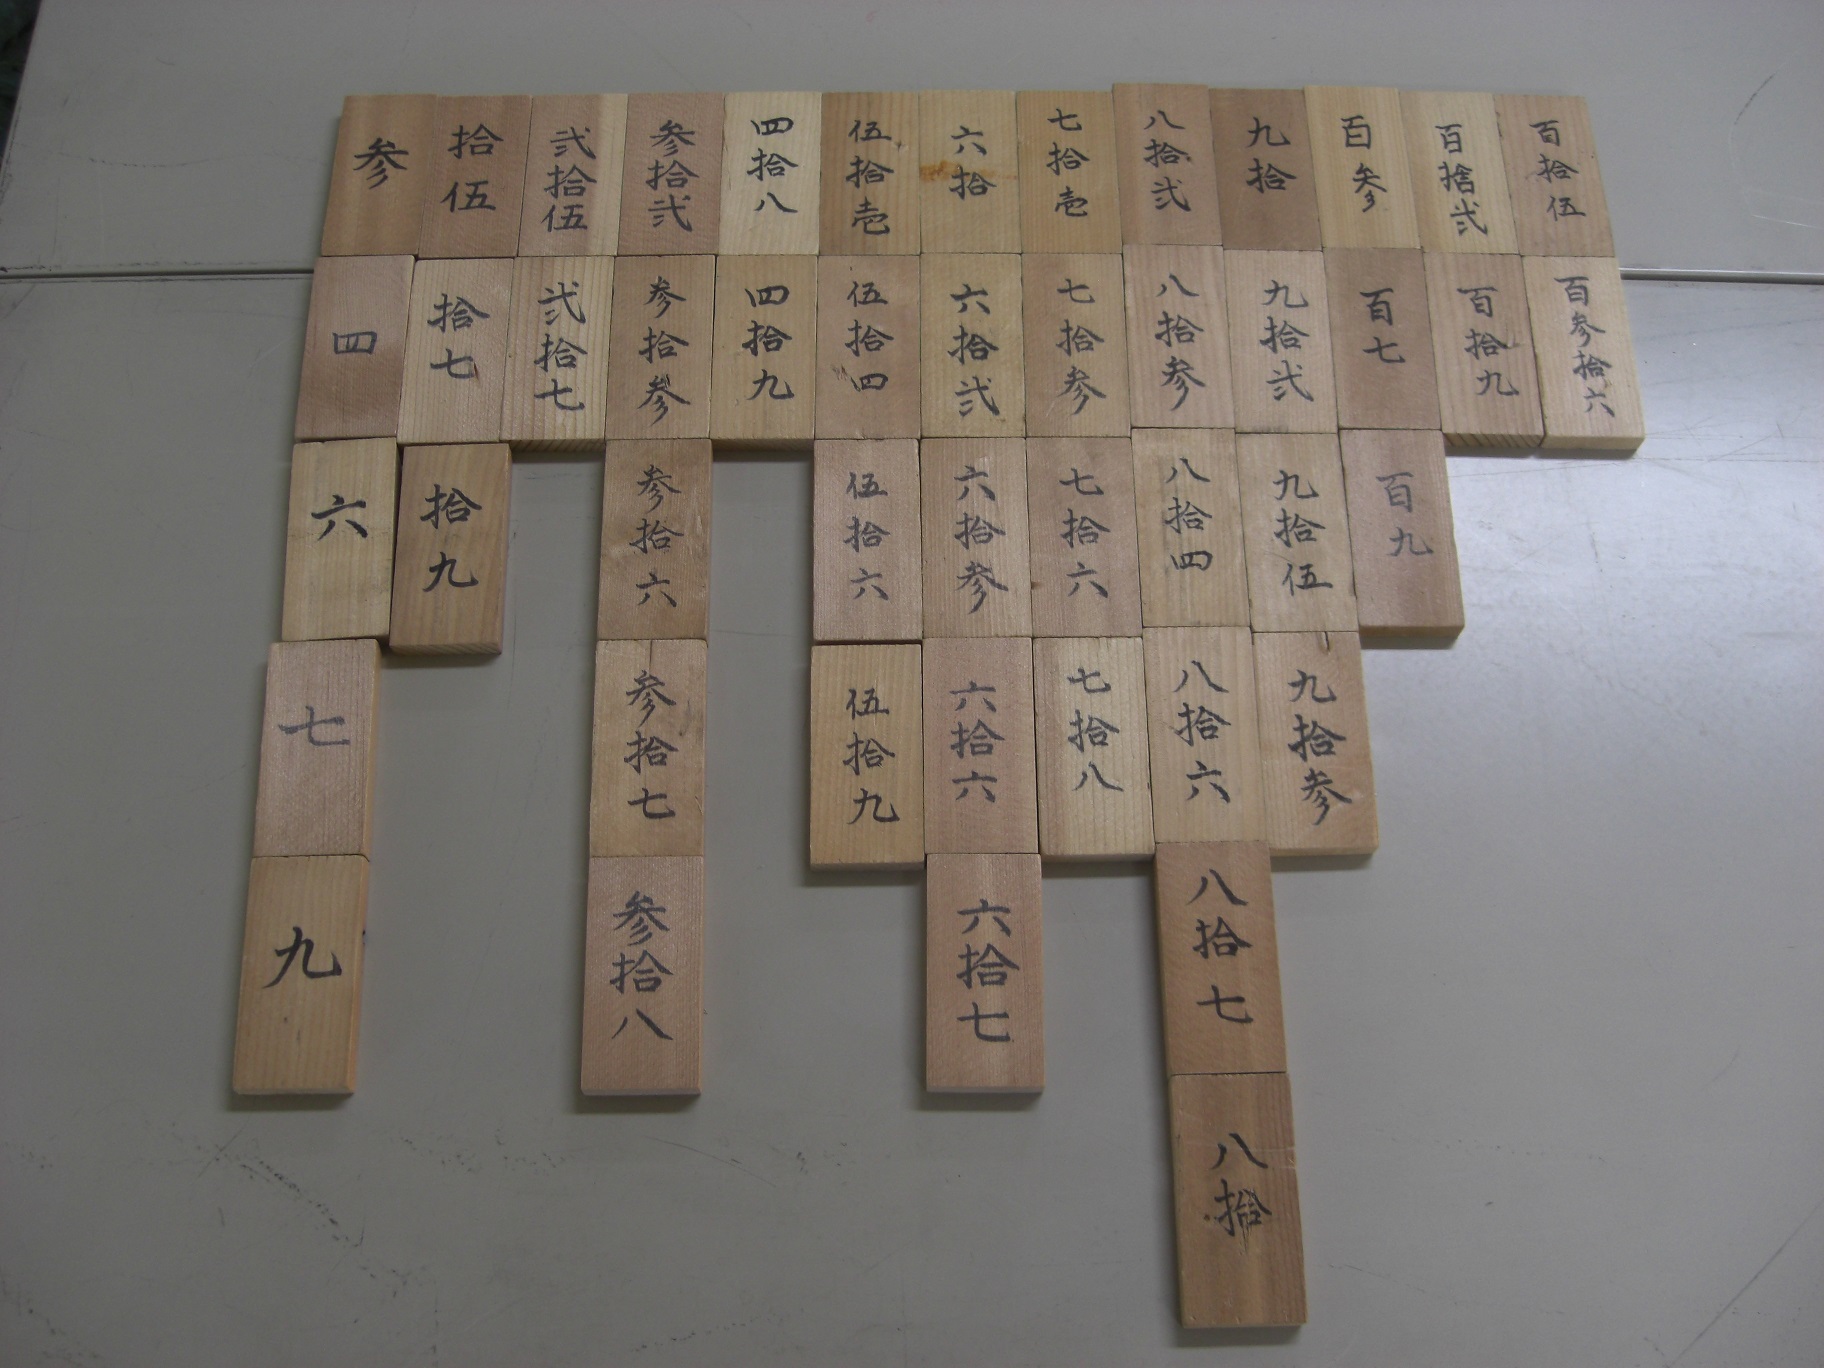 参
四
六
七
九
拾伍
拾七
拾九
弐拾伍
弐拾七
参拾弐
参拾参
参拾六
参拾七
参拾八
四拾八
四拾九
伍拾壱
伍拾四
伍拾六
伍拾九
六拾
六拾弐
六拾参
六拾六
六拾七
七拾壱
七拾参
七拾六
七拾八
八拾弐
八拾参
八拾四
八拾六
八拾七
八拾
九拾
九拾弐
九拾伍
九拾参
百参
百七
百九
百拾弐
百拾九
百拾伍
百参拾六